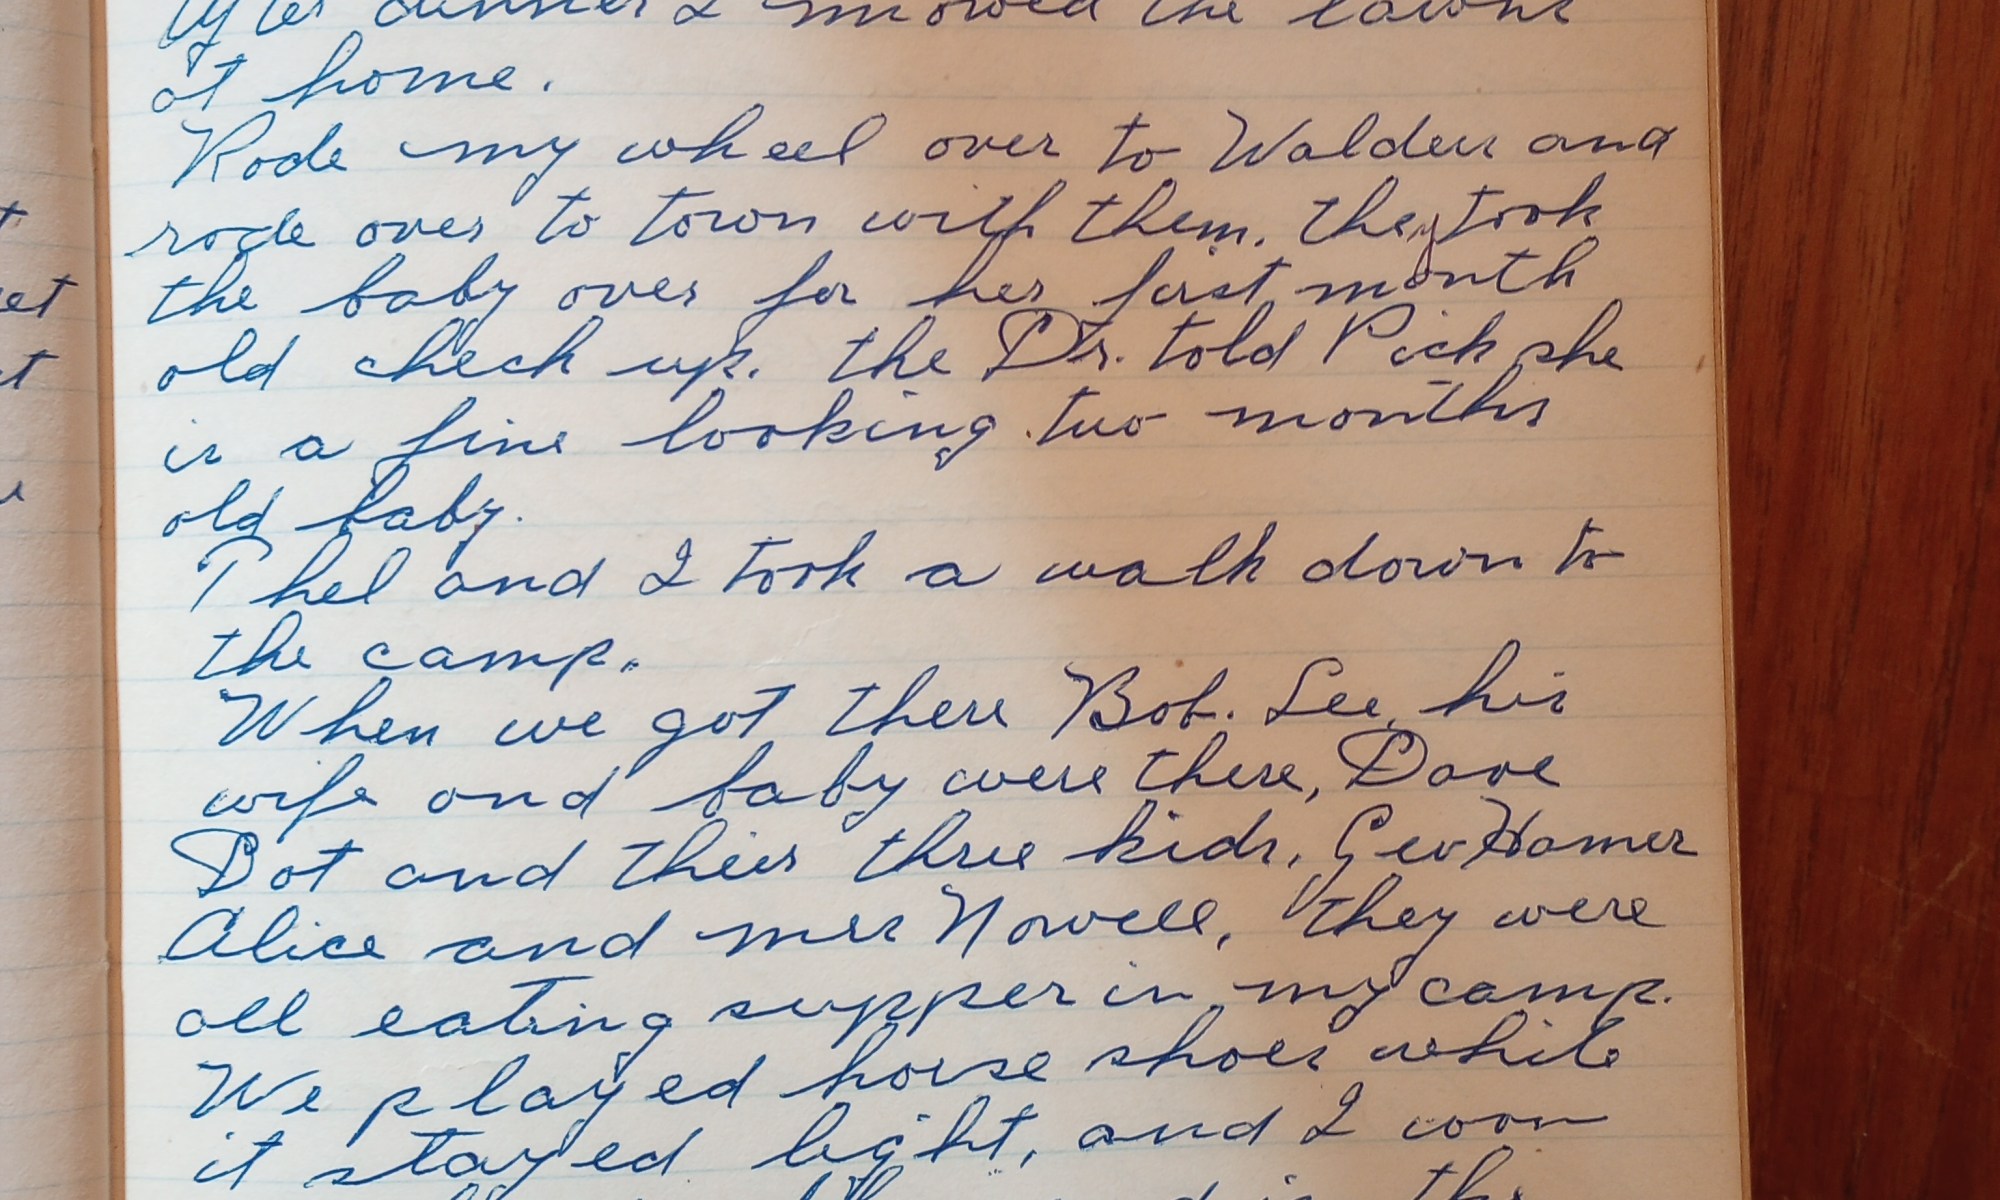 After dinner I mowed the lawns
at home.
Rode my wheel over to Walden and
rode over to town with them. they took
the baby over for her first month
old check up. the Dr. told Pick she
is a fine looking two months
old baby.
Thel and I took a walk down to
the camp.
When we got there Bob. Lee, his
wife and baby were there, Dave
Dot and their three kids, Geo Hamer
Alice and mrs Nowell, they were
all eating supper in my camp.
We played horse shoes while
it stayed light, and I won